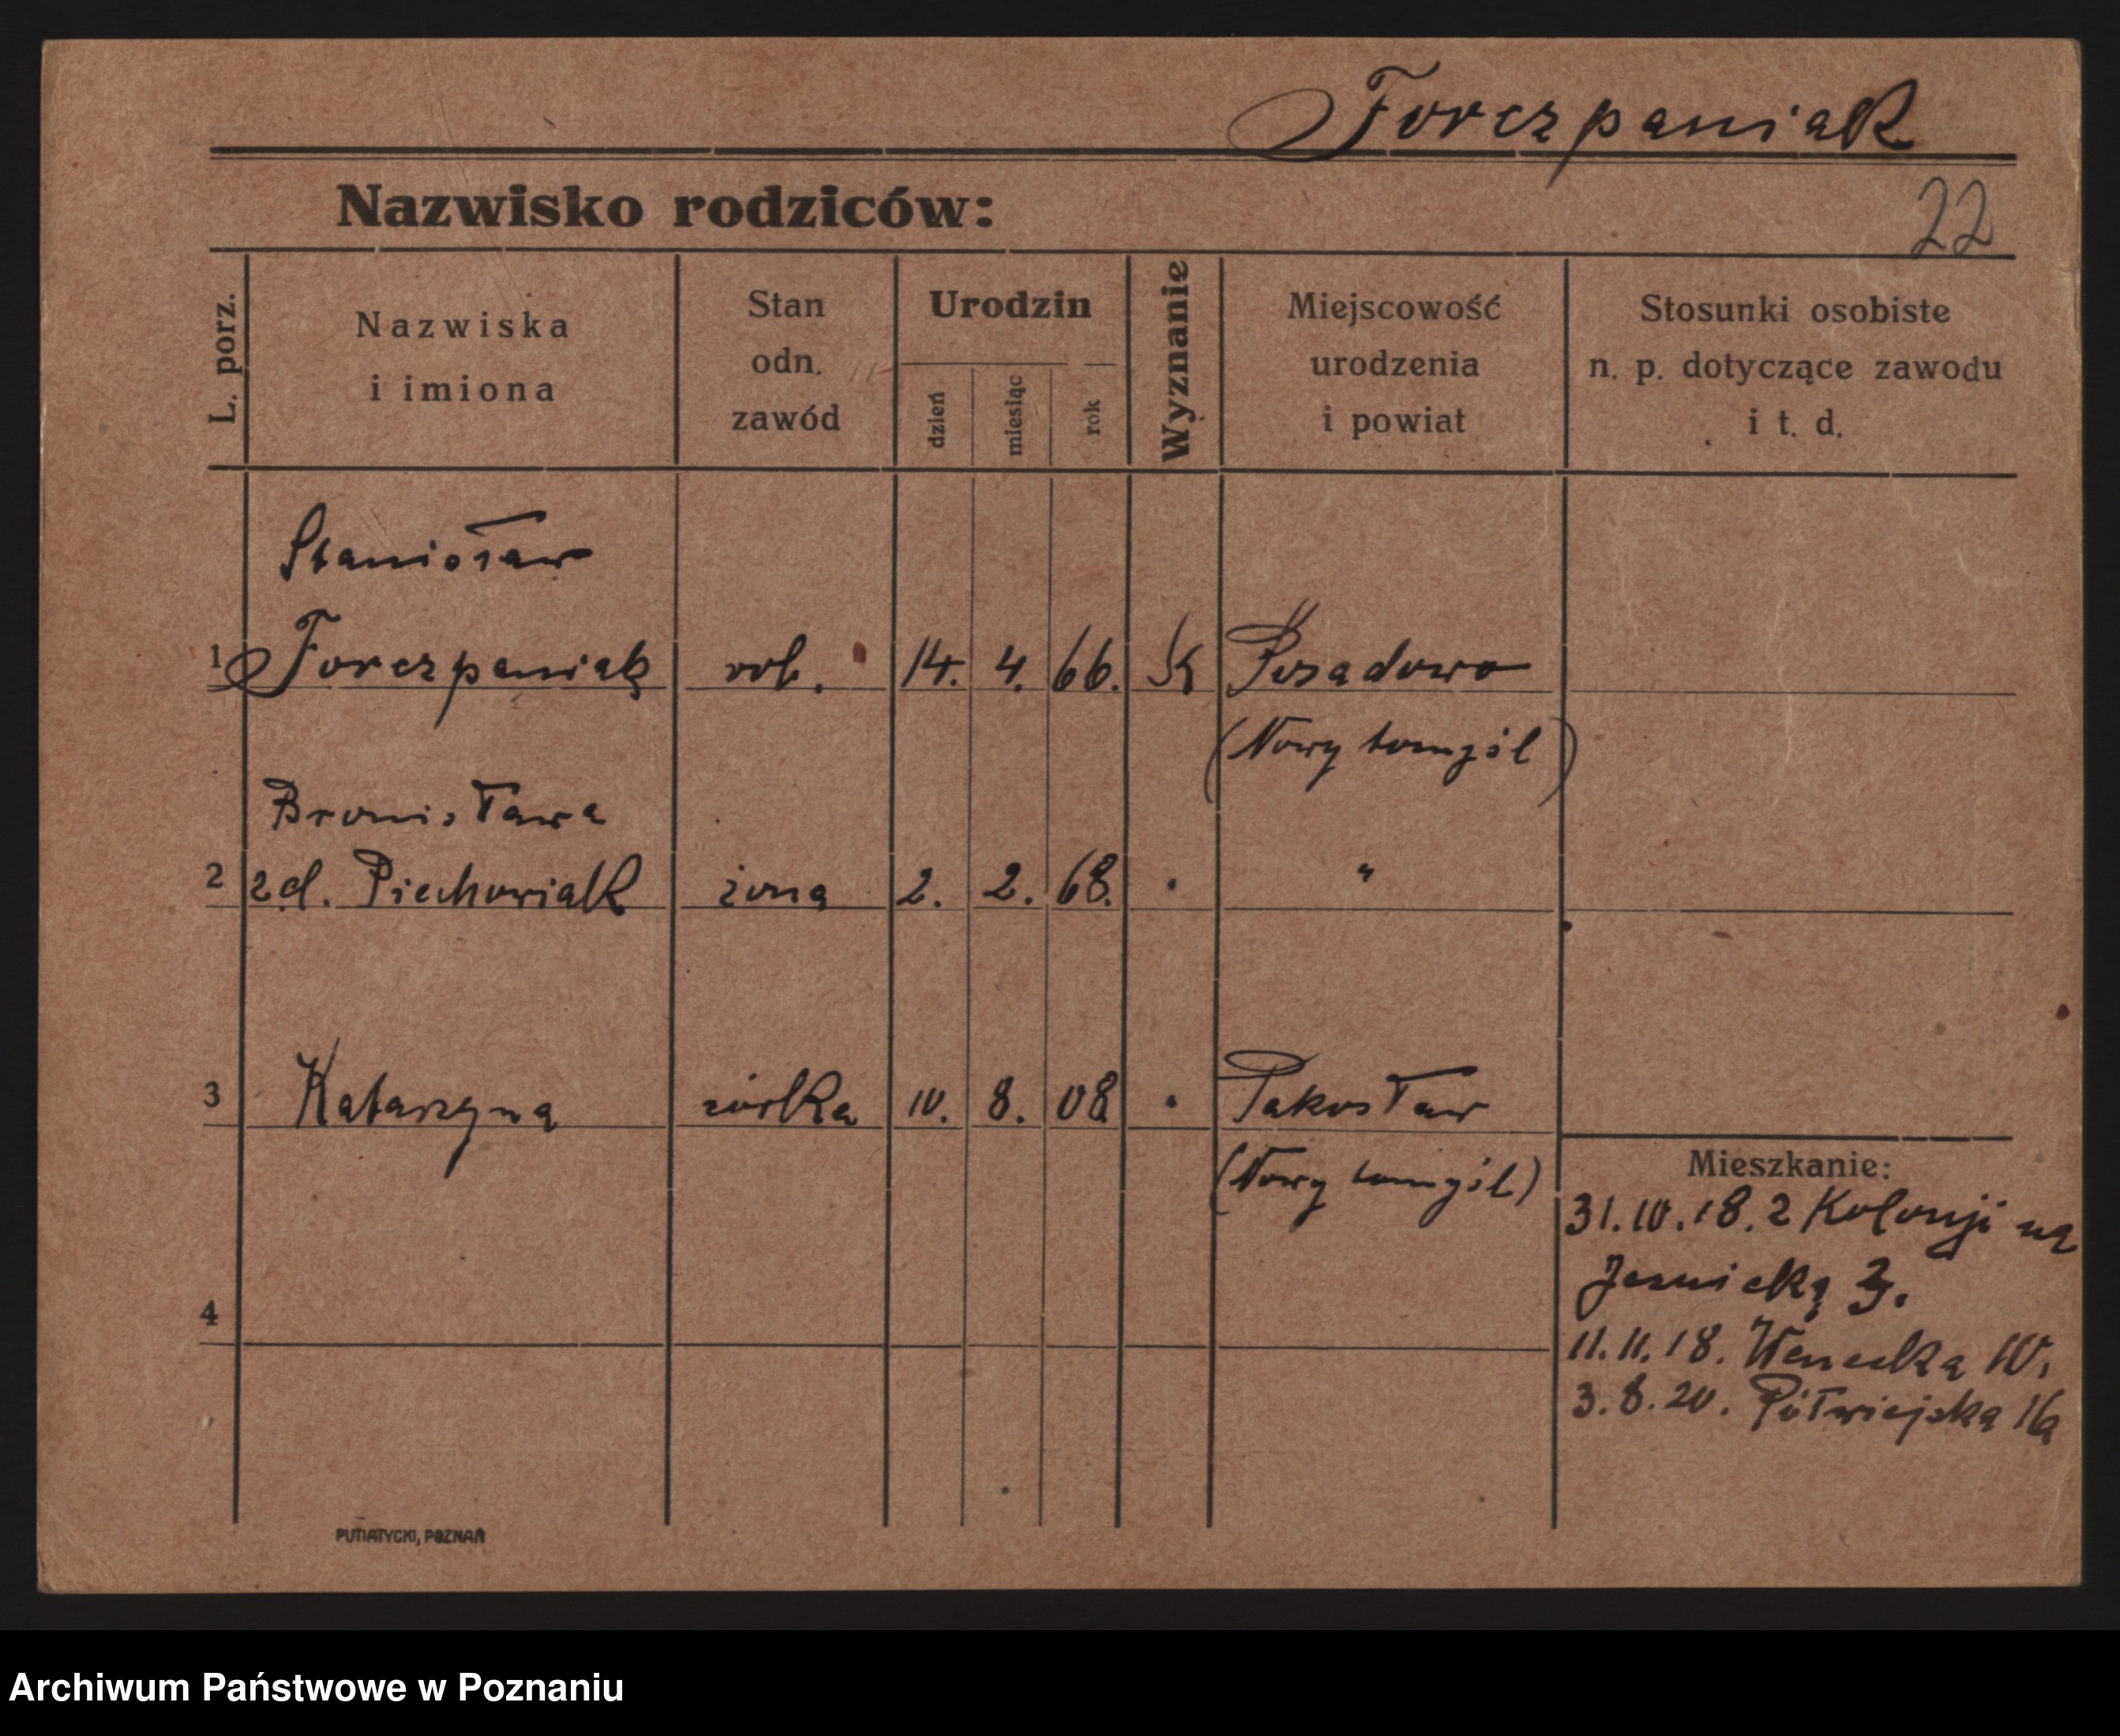 Forczpaniak
Nazwisko rodziców:
22
L. porz.
Nazwiska
i imiona
Stan
odn.
zawód
Urodzin
dzień
miesiąc
rok
Wyznanie
Miejscowość
urodzenia
i powiat
Stosunki osobiste
n. p. dotyczące zawodu
i t. d.
Stanisław
1 Forczpaniak rob. 14. 4. 66. K Posadowo
(Nowy tomyśl)
Bronisława
2 zd. Piechowiak żona 2. 2. 68. " "
3 Katarzyna córka 10. 8. 08 " Pakosław
(Nowy tomyśl)
4
Mieszkanie:
31.10.18. z Kolonji na
3.
11.11.18. Wenecka 10.
3.8.20. Półwiejska 16
PUTIATYCKI, POZNAŃ
Archiwum Państwowe w Poznaniu